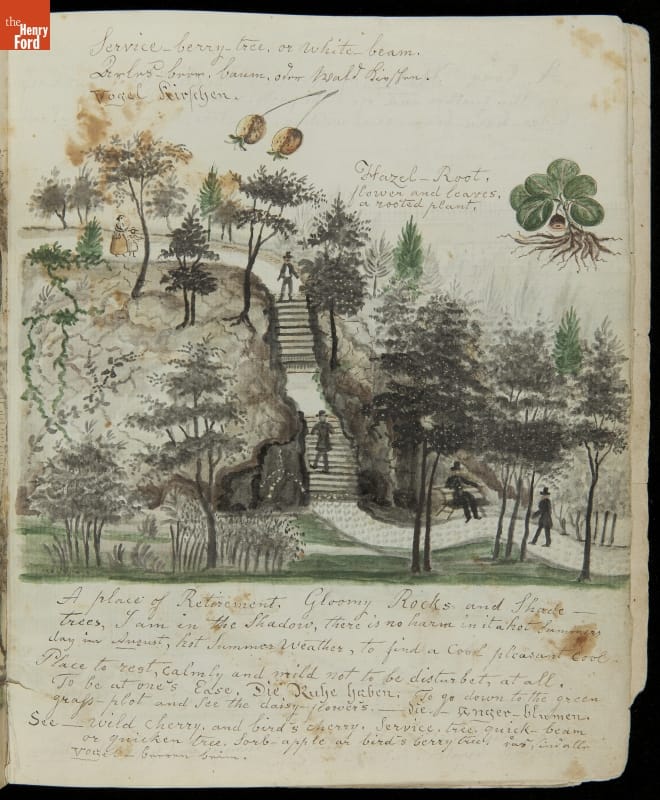 the
Henry
Ford
Service-berry-tree, or white-beam.
baum, oder Wald Kirschen.
Vogel Kirschen.
Hazel-Root,
flower and leaves,
a rooted plant.
A place of Retirement. Gloomy Rocks and Shade-
trees, I am in the Shadow, there is no harm in it a hot Summers
day in August, hot Summer Weather, to find a Cool pleasant Cool
Place to rest, calmly and mild not to be disturbet, at all.
To be at one's Ease, Die Ruhe haben. To go down to the green
grass-plot and See the daisy-flowers. - die - anger-blumen.
See - Wild cherry, and bird's cherry, Service, tree, quick-beam
or quicken tree. Sorb-apple or bird's berry tree,
Vogel-beeren baum.